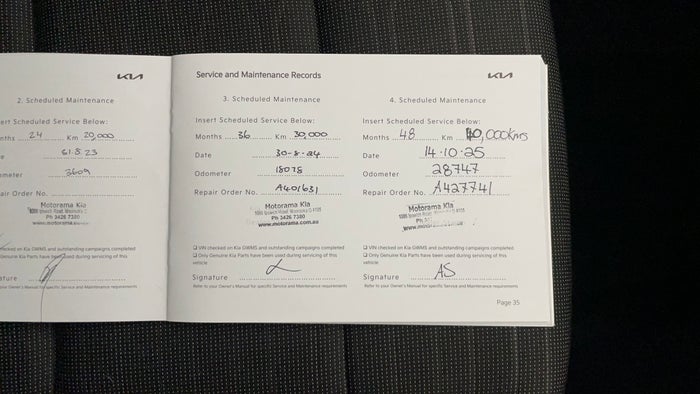 KIA
2. Scheduled Maintenance
ert Scheduled Service Below:
nths 24 Km 20,000
e 61.8.23
meter 3609
air Order No.
Motorama Kia
Ph 3426 7380
www.motorama.com.au
hecked on Kia GWMS and outstanding campaigns completed
Genuine Kia Parts have been used during servicing of this
ature
your Owner's Manual for specific Service and Maintenance requirements
Service and Maintenance Records
KIA
3. Scheduled Maintenance
Insert Scheduled Service Below:
Months 36 Km 30,000
Date 30-8-24
Odometer 18078
Repair Order No. A401631
Motorama Kia
Ph 3426 7380
www.motorama.com.au
☐ VIN checked on Kia GWMS and outstanding campaigns completed
☐ Only Genuine Kia Parts have been used during servicing of this
vehicle
Signature
Refer to your Owner's Manual for specific Service and Maintenance requirements
4. Scheduled Maintenance
Insert Scheduled Service Below:
Months 48 Km 40,000kms
Date 14.10.25
Odometer 28747
Repair Order No. A427741
Motorama Kia
☐ VIN checked on Kia GWMS and outstanding campaigns completed
☐ Only Genuine Kia Parts have been used during servicing of this
vehicle
Signature AS
Refer to your Owner's Manual for specific Service and Maintenance requirements
Page 35